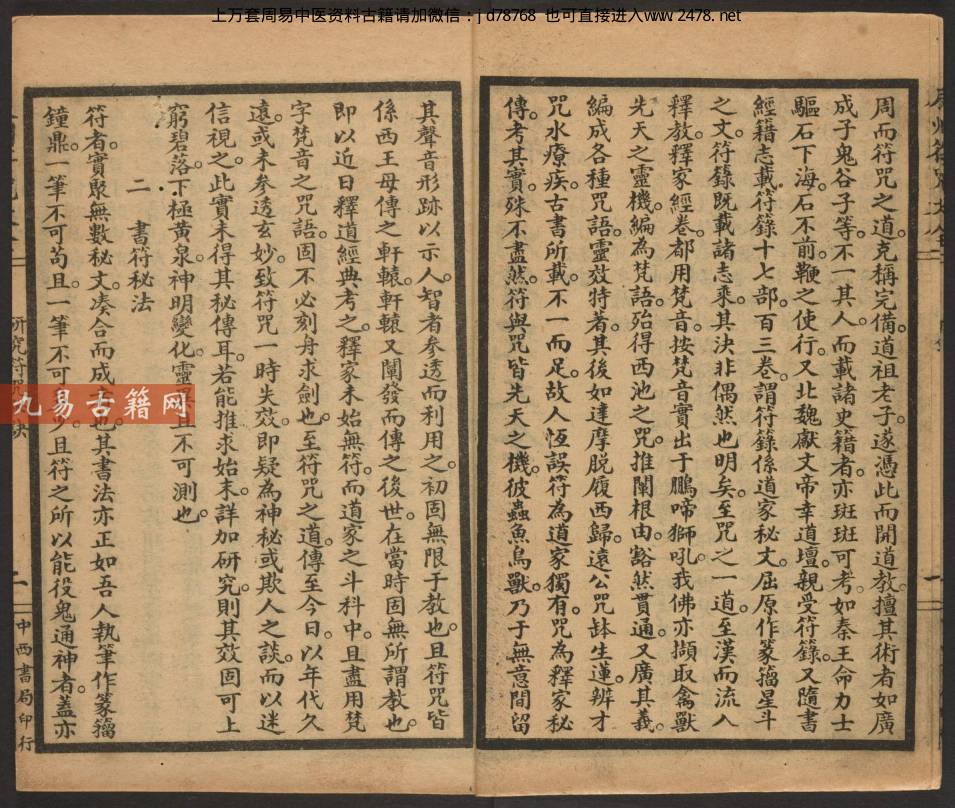 上万套周易中医资料古籍请加微信：jd78768 也可直接进入www.2478.net
周而符咒之道。克稱完備。道祖老子。遂憑此而開道教。擅其術者。如廣
成子鬼谷子等。不一其人。而載諸史籍者。亦班班可考。如秦王命力士
驅石下海。石不前。鞭之使行。又北魏獻文帝幸道壇。親受符籙。又隋書
經籍志載符籙十七部。百三卷。謂符籙係道家秘文。屈原作篆籀星斗
之文。符籙既載諸志乘。其決非偶然也明矣。至咒之一道。至漢而流入
釋教。釋家經卷。都用梵音。按梵音實出于鵬啼獅吼。我佛亦擷取禽獸
先天之靈機。編為梵語。殆得西池之咒。推闡根由。豁然貫通。又廣其義。
編成各種咒語。靈效特著。其後如達摩脫履西歸。遠公咒缽生蓮。辨才
咒水療疾。古書所載。不一而足。故人恆誤符為道家獨有。咒為釋家秘
傳。考其實。殊不盡然。符與咒皆先天之機。彼蟲魚鳥獸。乃于無意間留
其聲音形跡以示人。智者參透而利用之。初固無限于教也。且符咒皆
係西王母傳之軒轅。軒轅又闡發而傳之後世。在當時固無所謂教也。
即以近日釋道經典考之。釋家未始無符。而道家之斗科中。且盡用梵
字梵音之咒語。固不必刻舟求劍也。至符咒之道。傳至今日。以年代久
遠。或未參透玄妙。致符咒一時失效。即疑為神秘或欺人之談。而以迷
信視之。此實未得其秘傳耳。若能推求始末。詳加研究。則其效固可上
窮碧落。下極黃泉。神明變化。靈且不可測也。
二 書符秘法
符者。實聚無數秘文。湊合而成也。其書法亦正如吾人執筆作篆籀
鐘鼎。一筆不可苟且。一筆不可且符之所以能役鬼通神者。蓋亦
研究符
二
中西書局印行
一
九易古籍网